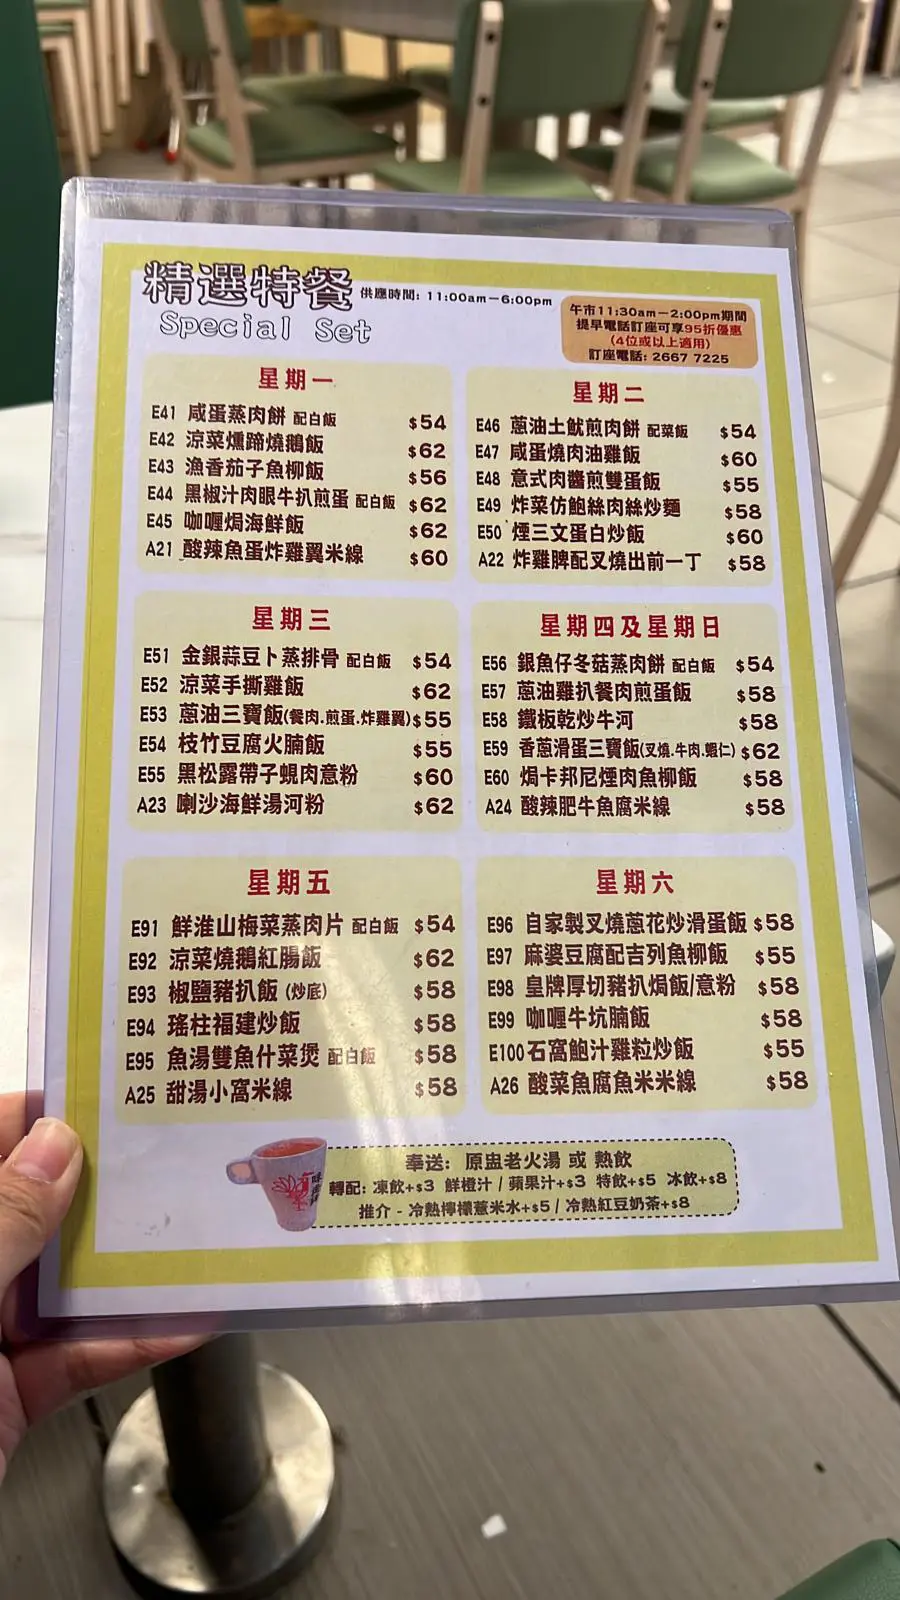 精選特餐 供應時間: 11:00am－6:00pm
Special Set
午市11:30am－2:00pm期間
提早電話訂座可享95折優惠
(4位或以上適用)
訂座電話: 2667 7225
星期一
E41 咸蛋蒸肉餅 配白飯 $54
E42 涼菜燻蹄燒鵝飯 $62
E43 漁香茄子魚柳飯 $56
E44 黑椒汁肉眼牛扒煎蛋 配白飯 $62
E45 咖喱焗海鮮飯 $62
A21 酸辣魚蛋炸雞翼米線 $60
星期二
E46 蔥油土魷煎肉餅 配菜飯 $54
E47 咸蛋燒肉油雞飯 $60
E48 意式肉醬煎雙蛋飯 $55
E49 炸菜仿鮑絲肉絲炒麵 $58
E50 煙三文蛋白炒飯 $60
A22 炸雞脾配叉燒出前一丁 $58
星期三
E51 金銀蒜豆卜蒸排骨 配白飯 $54
E52 涼菜手撕雞飯 $62
E53 蔥油三寶飯(餐肉.煎蛋.炸雞翼) $55
E54 枝竹豆腐火腩飯 $55
E55 黑松露帶子蜆肉意粉 $60
A23 喇沙海鮮湯河粉 $62
星期四及星期日
E56 銀魚仔冬菇蒸肉餅 配白飯 $54
E57 蔥油雞扒餐肉煎蛋飯 $58
E58 鐵板乾炒牛河 $58
E59 香蔥滑蛋三寶飯(叉燒.牛肉.蝦仁) $62
E60 焗卡邦尼煙肉魚柳飯 $58
A24 酸辣肥牛魚腐米線 $58
星期五
E91 鮮淮山梅菜蒸肉片 配白飯 $54
E92 涼菜燒鵝紅腸飯 $62
E93 椒鹽豬扒飯 (炒底) $58
E94 瑤柱福建炒飯 $58
E95 魚湯雙魚什菜煲 配白飯 $58
A25 甜湯小窩米線 $58
星期六
E96 自家製叉燒蔥花炒滑蛋飯 $58
E97 麻婆豆腐配吉列魚柳飯 $55
E98 皇牌厚切豬扒焗飯/意粉 $58
E99 咖喱牛坑腩飯 $58
E100 石窩鮑汁雞粒炒飯 $55
A26 酸菜魚腐魚米米線 $58
奉送: 原盅老火湯 或 熱飲
轉配: 凍飲+$3 鮮橙汁 / 蘋果汁+$3 特飲+$5 冰飲+$8
推介 - 冷熱檸檬薏米水+$5 / 冷熱紅豆奶茶+$8